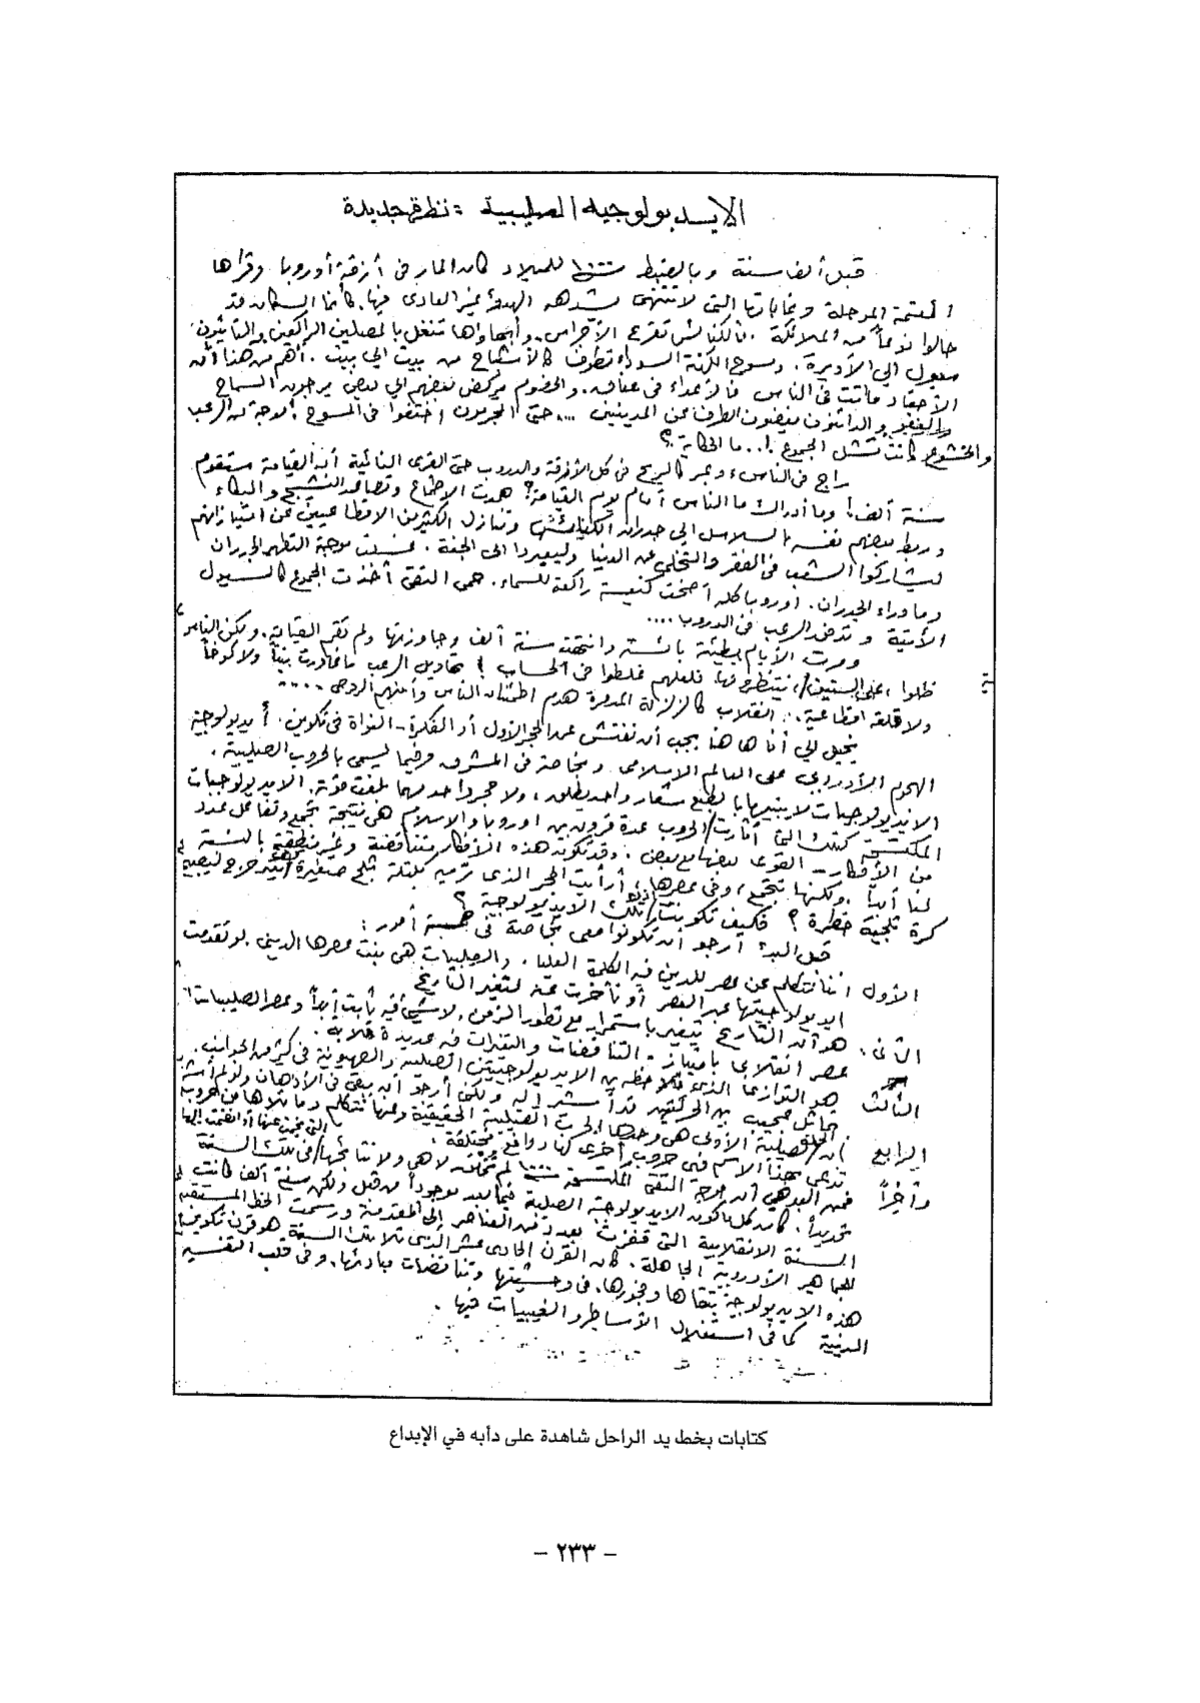 الايديولوجيه الصليبية = نظرة جديدة
قبل ألف سنة وبالضبط سنة ١٠٠٠ للميلاد كان المار في أزقة أوروبا وقراها
المعتمة الموحلة وغاباتها التي لا تنتهي يشدهه الهدوء غير العادي فيها. كأنما السكان قد
حالوا نوعاً من الملائكة. فالكنائس تقرع الأجراس.. وأبهاؤها تنغل بالمصلين الراكعين والتائبون
سيول الى الأديرة. ومسوح الكهنة السوداء تطوف كالأشباح من بيت الى بيت. أهم من هذا أن
الأحقاد ماتت في الناس فالأعداء في عناق. والخصوم يركض بعضهم الى بعض يرجون السماح
والعفو والدائنون يغضون الطرف عن المدينين .... حتى المجرمون اختفوا في المسوح! موجة من الرعب
والخشوع كانت تشل الجموع!.. ما الحكاية؟
راج في الناس، وعبر كالريح في كل الأزقة والدروب حتى القرى النائية أن القيامة ستقوم
سنة ألف! وما أدراك ما الناس أمام يوم القيامة؟ هدت الأطماع وتصاعد النشيج والبكاء
وربط بعضهم نفسه بالسلاسل الى جدران الكنائس وتنازل الكثير من الاقطاعيين عن امتيازاتهم
ليشاركوا الشعب في الفقر والتخلي عن الدنيا وليعبروا الى الجنة. غسلت موجة التطهر الجدران
وما وراء الجدران. اوروبا كلها أضحت كنيسة راكعة للسماء. حمى التقى أخذت الجموع كالسيول
الأتية و تدفق الرعب في الدروب ....
ومرت الأيام بطيئة بائسة وانتهت سنة ألف وجاوزتها ولم تقم القيامة. ولكن الناس
ظلوا، على السنين، ينتظرونها. فلعلهم غلطوا في الحساب! تهاويل الرعب ما غادرت بيتاً ولا كوخاً
ولا قلعة اقطاعية.. انقلاب كالزلزلة المدمرة هدم اطمئنان الناس وأمنهم الروحي ....
يخيل الي أنا ها هنا يجب أن نفتش عن الحجر الأول أو الفكرة - النواة في تكوين. أيديولوجية
الهجوم الأوروبي على العالم الاسلامي وبخاصة في المشرق وفيما يسمى بالحروب الصليبية.
الايديولوجيات لا يبنيها بالطبع شعار واحد يطلق، ولا حجر واحد مهما بلغت قوته. الايديولوجيات
المكتسحة كتلك التي أثارت الحروب عدة قرون بين اوروبا والاسلام هي نتيجة تجمع وتفاعل عدد
من الأفكار - القوى بعضها مع بعض. وقد تكون هذه الأفكار متناقضة وغير منطقية بالنسبة
لنا أبداً. ولكنها تتجمع، وفي عصرها، أرأيت الحجر الذي ترميه بكتلة ثلج صغيرة كيف يتدحرج ليصبح
كرة ثلجية خطرة؟ فكيف تكونت اذن تلك الايديولوجية؟
قبل البدء أرجو أن تكونوا معي بخاصة في خمسة أمور:
الأول اننا نتكلم عن عصر للدين فيه الكلمة العليا. والصليبيات هي بنت عصرها الديني. لو تقدمت
ايديولوجيتها عبر العصر أو تأخرت عنه لتغير التاريخ
الثاني. هو أن التاريخ يتغير باستمرار مع تطور الزمن. لا شيء فيه ثابت أبداً وعصر الصليبيات
عصر انقلابي بامتياز. التناقضات والتغيرات فيه عديدة خلابة.
الثالث هو التوازي الذي نلاحظه بين الايديولوجيتين الصليبية والصهيونية في كثير من الجوانب.
تماثل عجيب بين الحركتين قد أشير اليه ولكني أرجو أن يبقى في الأذهان ولو لم أشر
الرابع ان الحملة الصليبية الأولى هي وحدها الحرب الصليبية الحقيقية وعنها نتكلم وما تلاها من حروب
تدعى بهذا الاسم فهي حروب أخرى لها دوافع مختلفة.
وأخيراً فمن البدهي أن موجة التقى المكتسحة ١٠٠٠ لم تختلف لا هي ولا نتائجها في تلك السنة
تحديداً. كان كل ما كون الايديولوجية الصليبية فيما بعد موجوداً من قبل ولكن سنة ألف كانت
السنة الانقلابية التي قفزت بعدد من العناصر إلى المقدمة ورسمت الخط المستقيم
للجماهير الأوروبية الجاهلة. كان القرن الحادي عشر الذي تلا تلك السنة هو قرن تكوين
هذه الايديولوجية بتقاها وفجورها. في وحشيتها وتناقضات مبادئها. وفي قلب النفسية
الدينية كما في استغلال الأساطير والغيبيات فيها.
كتابات بخط يد الراحل شاهدة على دأبه في الإبداع
- ٢٣٣ -